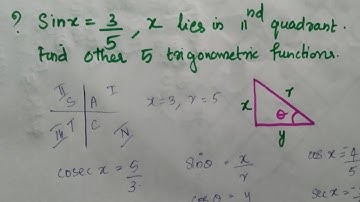 ? Sin x = 3/5 , x lies in IInd quadrant.
Find other 5 trigonometric functions.
II S | A I
III T | C IV
x=3, r=5
x r θ y
cosec x = 5/3
sinθ = x/r
cosθ = y
cos x = -4/5
sec x = -